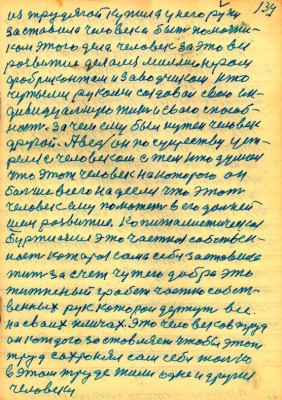 134
из трудягой купила у него руку
заставила человека быть помощни-
ком этого дела человек за это вы
развитие делаем миллионером
фабрикантом и заводчиком кто
чужыми руками создовал свою ин-
дивидуальную жизнь и свою способ-
ность. Зачем ему был нужен человек
другой. Ведь он по существу
с человеком с тем кто думал
что этот человек на которого он
больше всего надеялся что этот
человек ему поможет в его дальней-
шем развитие. Капиталистическая
буржуазия это частная собствен-
ност которая сама себя заставила
жить за счет чужого добра это
грабеж частно собст-
венных рук которой держит все.
на своих плечах. Это человеков труд
он каждого заставляет чтобы этот
труд сохронял сам себя только
в этом труде жили одне и другие
человеки